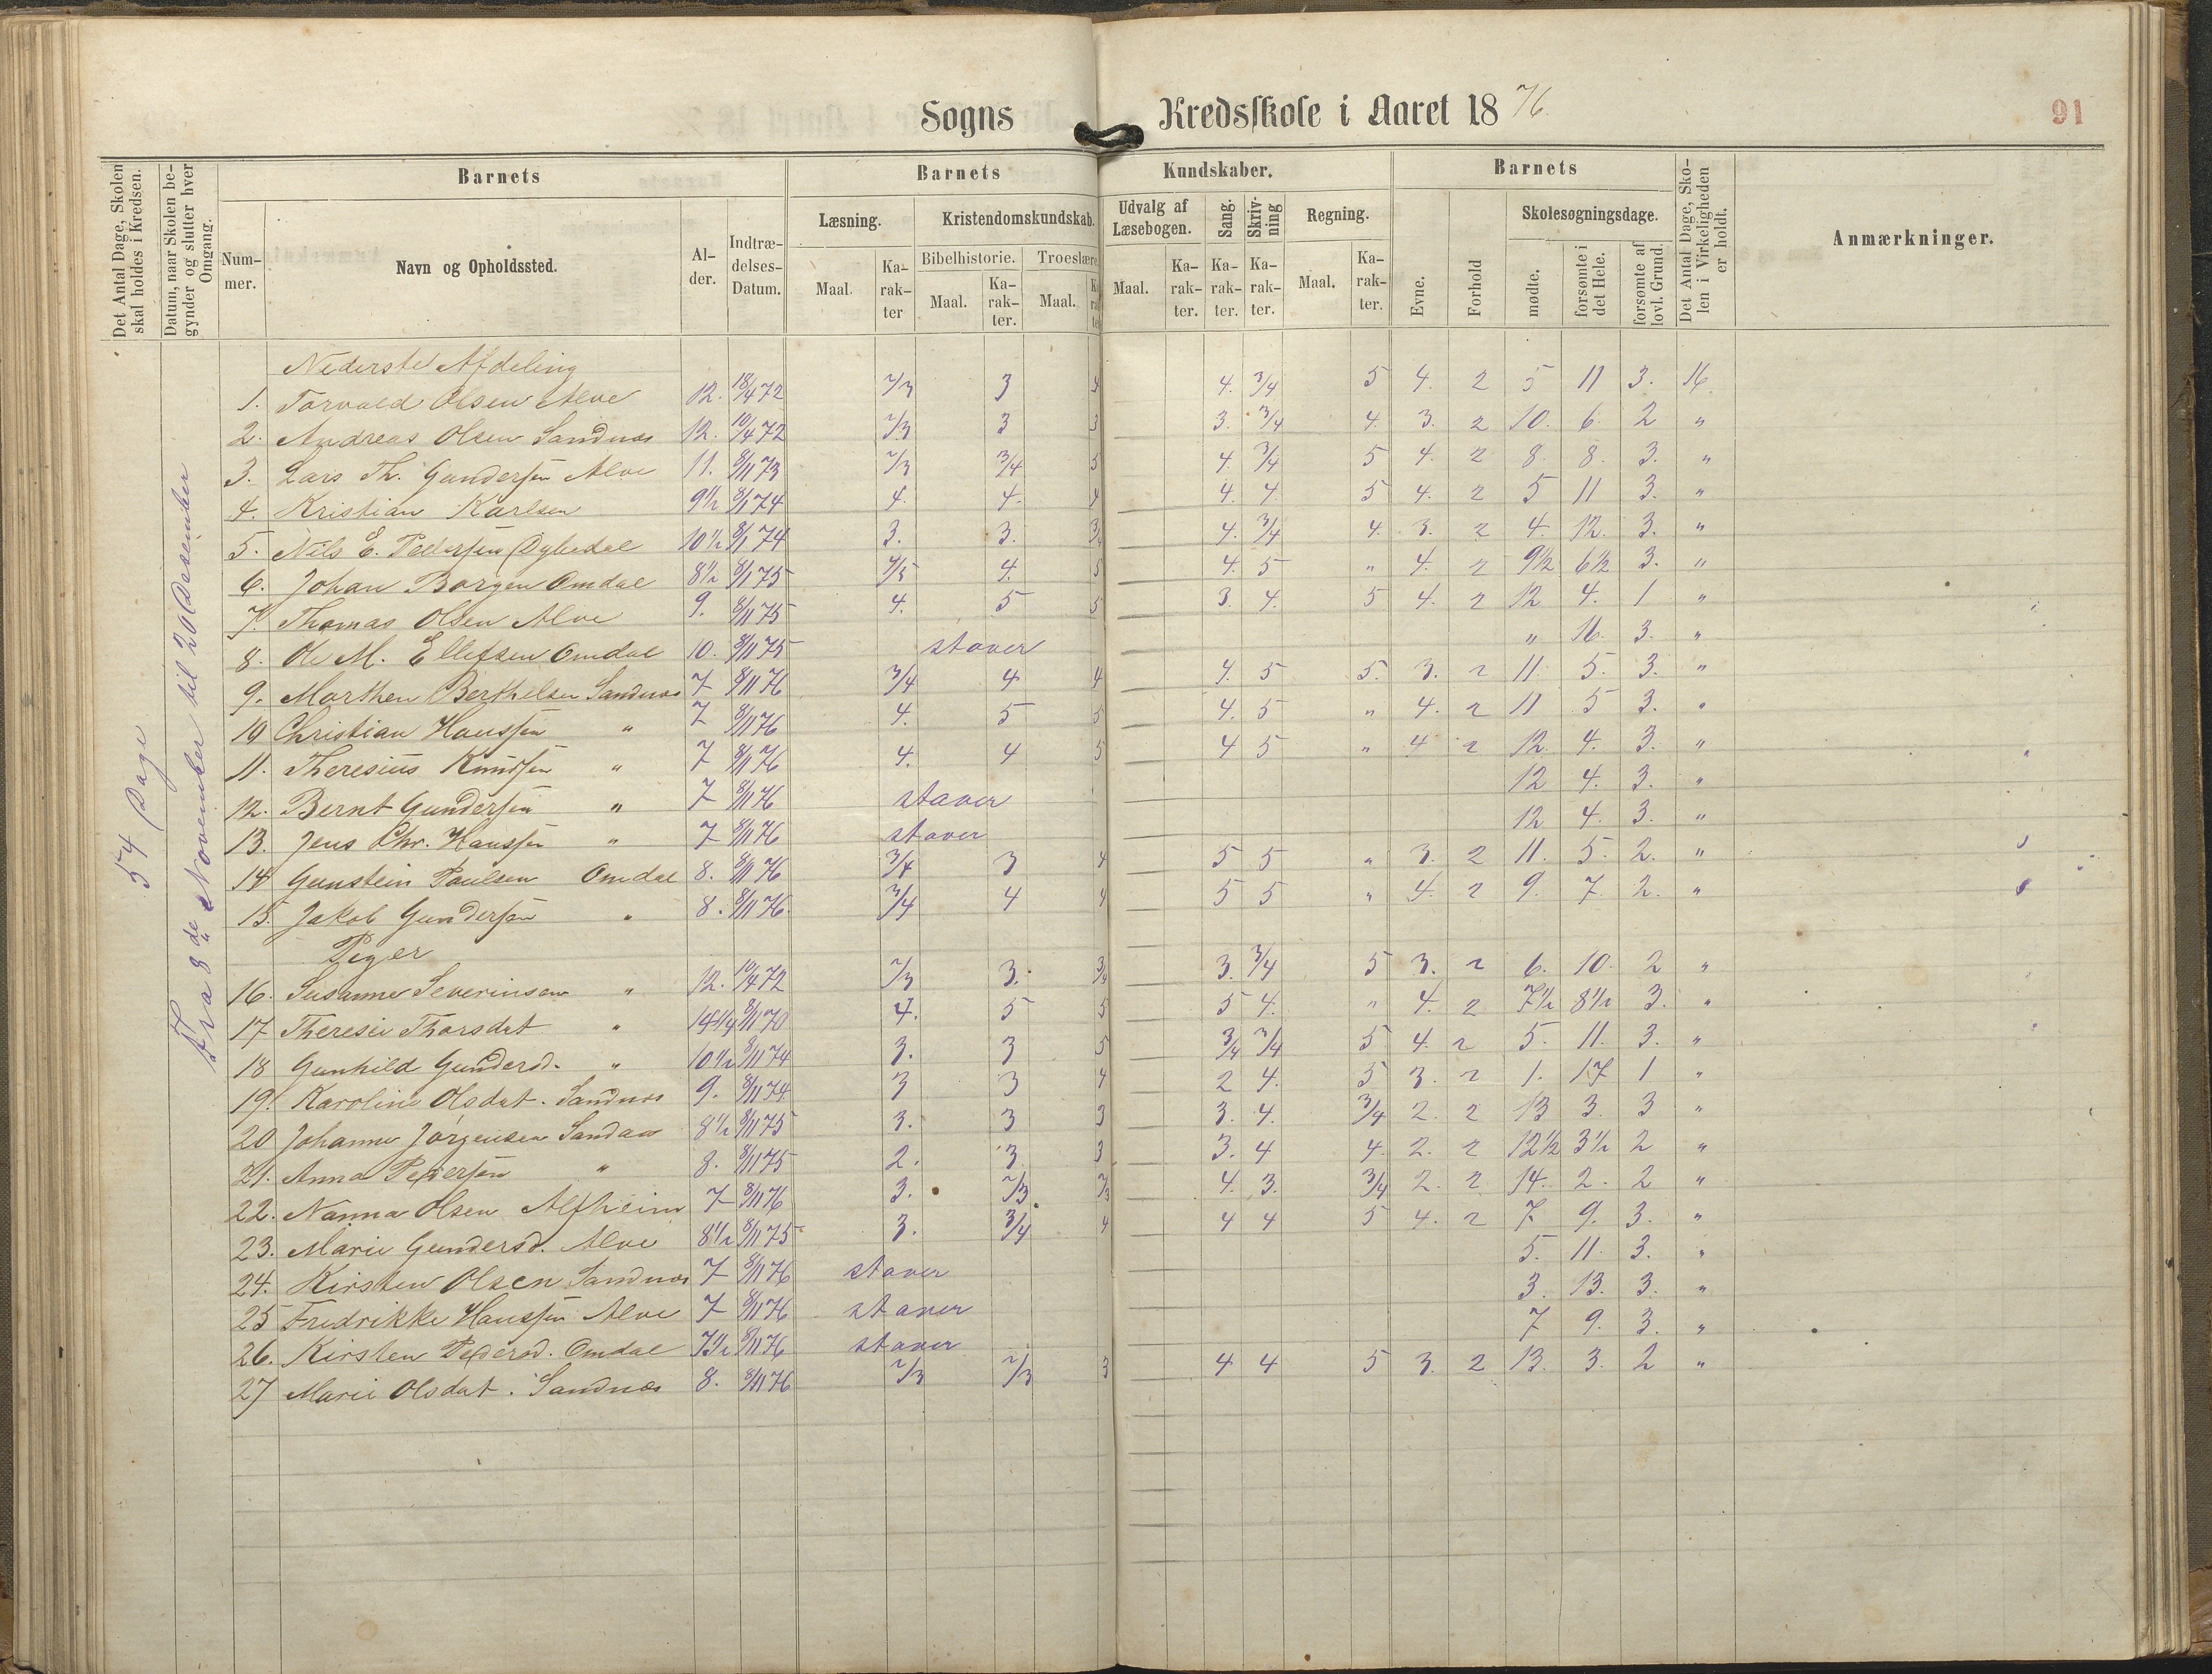 Sogns Kredsskole i Aaret 1876.
91
Det Antal Dage, Skolen skal holdes i Kredsen.
Datum, naar Skolen begynder og slutter hver Omgang.
Barnets
Barnets Kundskaber.
Barnets
Det Antal Dage, Skolen i Virkeligheden er holdt.
Anmærkninger.
Nummer.
Navn og Opholdssted.
Alder.
Indtrædelses-Datum.
Læsning.
Kristendomskundskab.
Udvalg af Læsebogen.
Sang.
Skrivning
Regning.
Evne.
Forhold
Skolesøgningsdage.
Bibelhistorie.
Troeslære
Maal.
Karakter
Maal.
Karakter.
Maal.
Maal.
Karakter.
Karakter.
Karakter.
Maal.
Karakter.
mødte.
forsømte i det Hele.
forsømte af lovl. Grund.
54 Dage
Fra 8de November til 20 Desember
Nederste Afdeling
1. Torvald Olsen Alve 12. 18/4 72 2/3 3 4 4. 3/4 5 4. 2 5 11 3. 16.
2. Andreas Olsen Sandnæs 12. 10/4 72 2/3 3 3 3. 3/4 4. 3. 2 10. 6. 2 "
3. Lars Th. Gundersen Alve 11. 8/11 73 2/3 3/4 5 4. 3/4 5 4. 2 8. 8. 3. "
4. Kristian Karlsen 9 1/2 8/1 74 4. 4. 4 4. 4. 5 4. 2 5 11 3. "
5. Nils E. Pedersen Dybedal 10 1/2 8/1 74 3. 3. 3/4 4. 3/4 4. 3. 2 4. 12. 3. "
6. Johan Borgen Omdal 8 1/2 8/1 75 4/5 4. 5 4. 5 " 4. 2 9 1/2 6 1/2 3. "
7. Thomas Olsen Alve 9. 8/11 75 4. 5 5 3. 4. 5 4. 2 12 4. 1 "
8. Ole M. Ellefsen Omdal 10. 8/11 75 staver " 16. 3. "
9. Marthen Berthelsen Sandnæs 7 8/11 76 3/4 4 4 4. 5 5. 3. 2 11. 5. 3. "
10 Christian Hanssen " 7 8/11 76 4. 5 5 4. 5 " 4. 2 11 5 3. "
11. Theresius Knudsen " 7 8/11 76 4. 4 5 4 5 " 4 2 12. 4. 3. "
12. Bernt Gundersen " 7 8/11 76 staver 12 4. 3. "
13. Jens Chr. Hanssen " 7 8/11 76 staver 12 4. 3. "
14 Gunstein Paulsen Omdal 8. 8/11 76 3/4 3 4 5 5 " 3. 2 11. 5. 2. "
15. Jakob Gundersen " 8. 8/11 76. 3/4 4 4 5 5 " 4. 2 9. 7. 2. "
Piger
16. Susanne Severinsen " 12. 10/4 72 2/3 3. 3/4 3. 3/4 5 3. 2 6. 10. 2 "
17 Theresie Thorsdat " 14 1/4 8/11 70 4. 5 5 5 4. " 4. 2 7 1/2 8 1/2 3. "
18 Gunhild Gundersd. " 10 1/2 8/11 74 3. 3 5 3/4 3/4 5 4. 2 5. 11. 3. "
19. Karoline Olsdat. Sandnæs 9. 8/11 74 3 3 4 2 4. 5 3. 2 1. 17 1 "
20 Johanne Jørgensen Sandnæs 8 1/2 8/11 75 3. 3 3 3. 4. 3/4 2. 2 13 3. 3 "
21. Anna Pedersen " 8. 8/11 75 2. 3 3 3. 4 4. 2. 2 12 1/2 3 1/2 2 "
22. Nanna Olsen Alfheim 7 8/11 76 3. 2/3 2/3 4. 3. 3/4 2. 2 14. 2. 2 "
23. Marie Gundersd. Alve 8 1/2 8/11 75 3. 3/4 4 4 4 5 4. 2 7. 9. 3. "
24. Kirsten Olsen Sandnæs 7 8/11 76 staver 5. 11. 3. "
25 Fredrikke Hanssen Alve 7 8/11 76 staver 3. 13. 3. "
26. Kirsten Pedersd. Omdal 7 1/2 8/11 76 staver 7 9. 3. "
27 Marie Olsdat. Sandnæs 8. 8/11 76 2/3 2/3 3 4 4 5 3. 2 13. 3. 2 "